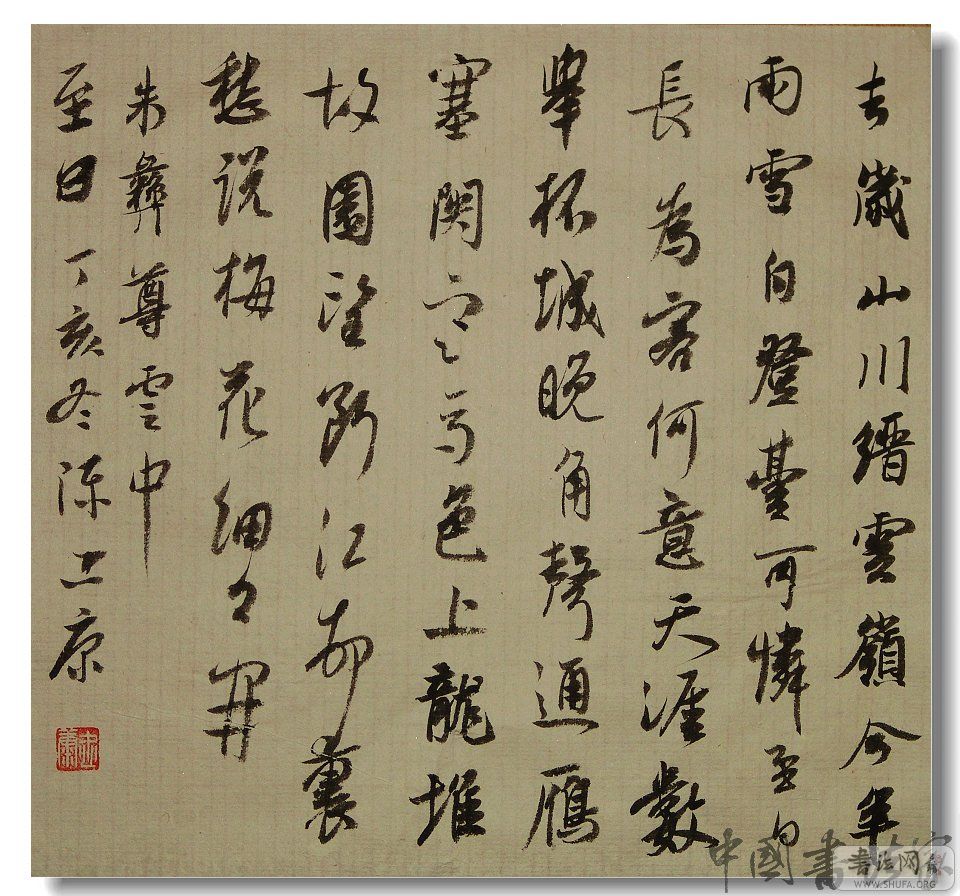 去歲山川縉雲嶺今年
雨雪白登臺可憐至日
長為客何意天涯數
舉杯城晚角聲通鴈
塞関寒馬色上龍堆
故園望斷江邨裏
愁說梅花細々開
朱彝尊雲中
至日丁亥冬陳忠康
中國書法家
书法网
WWW.SHUFA.ORG